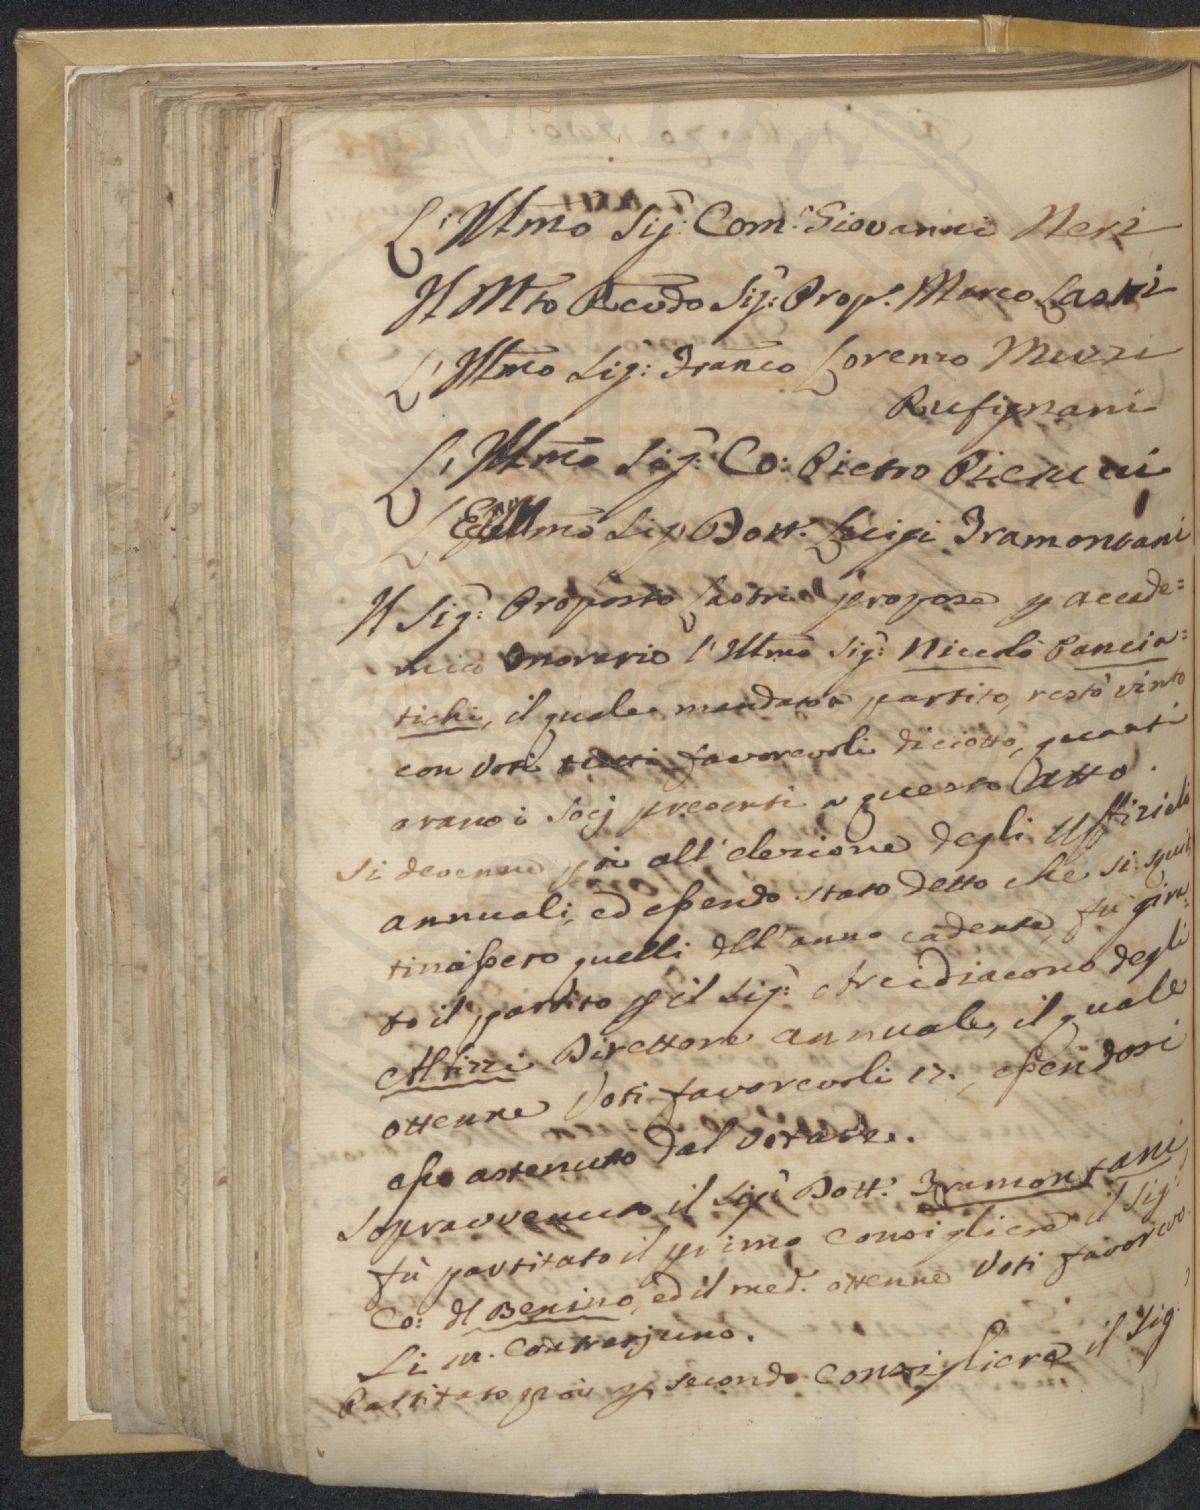 L'Illmo Sig: Com: Giovanni Neri
Il Mto Revdo Sig: Prop: Marco Lastri
L'Illmo Sig: Franco Lorenzo Muzzi
Rufignani
L'Illmo Sig: Co: Pietro Pierucci
L'Ecclmo Sig Dott. Luigi Tramontani
Il Sig: Proposto Lastri propose p accade=
mico Onorario l'Illmo Sig: Niccolò Pancia=
tichi, il quale mandato a partito, restò vinto
con Voti tutti favorevoli diciotto, quanti
erano i Socj presenti a questo Atto.
Si devenne poi all'elezione degli Uffiziali
annuali, ed essendo stato detto che si squit
tinassero quelli dell'anno cadente, fù gira=
to il partito p il Sig: Arcidiacono degli
Albizzi Direttore annuale, il quale
ottenne Voti favorevoli 17., essendosi
esso astenuto dal votare.
Sopravvenuto il Sig: Dott. Tramontani
fù partitato il primo Consigliere il Sig:
Co: Del Benino, ed il med. ottenne Voti favorevo
li contrarj uno.
Partitato poi p secondo Consigliere il Sig